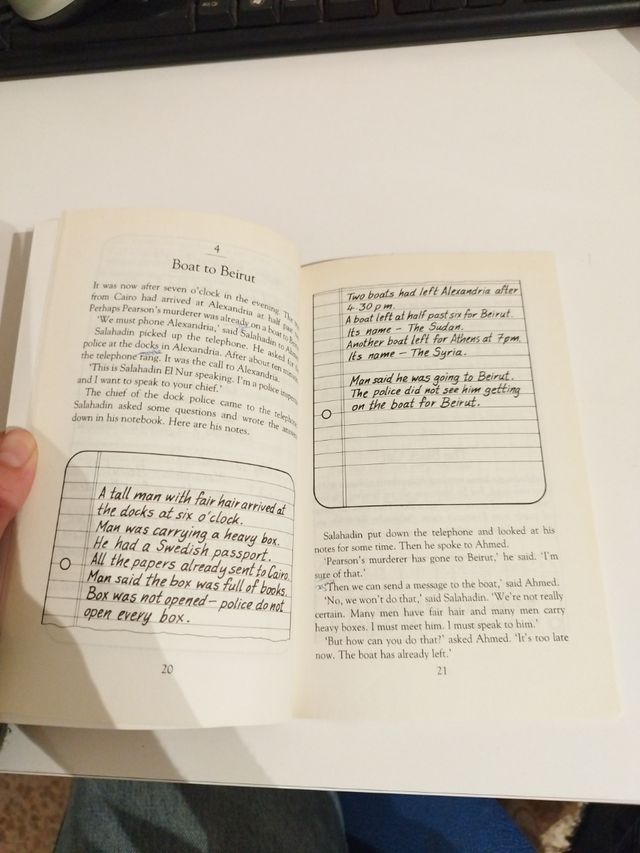 4
Boat to Beirut
It was now after seven o'clock in the evening. The
from Cairo had arrived at Alexandria at half past
Perhaps Pearson's murderer was already on a boat to
'We must phone Alexandria,' said Salahadin to
Salahadin picked up the telephone. He asked for
police at the docks in Alexandria. After about ten
the telephone rang. It was the call to Alexandria.
'This is Salahadin El Nur speaking. I'm a police
and I want to speak to your chief.'
The chief of the dock police came to the telephone.
Salahadin asked some questions and wrote the
down in his notebook. Here are his notes.
A tall man with fair hair arrived at
the docks at six o'clock.
Man was carrying a heavy box.
He had a Swedish passport.
All the papers already sent to Cairo.
Man said the box was full of books.
Box was not opened – police do not
open every box.
20
Two boats had left Alexandria after
4.30 pm.
A boat left at half past six for Beirut.
Its name – The Sudan.
Another boat left for Athens at 7pm.
Its name – The Syria.
Man said he was going to Beirut.
The police did not see him getting
on the boat for Beirut.
Salahadin put down the telephone and looked at his
notes for some time. Then he spoke to Ahmed.
'Pearson's murderer has gone to Beirut,' he said. 'I'm
sure of that.'
'Then we can send a message to the boat,' said Ahmed.
'No, we won't do that,' said Salahadin. 'We're not really
certain. Many men have fair hair and many men carry
heavy boxes. I must meet him. I must speak to him.'
'But how can you do that?' asked Ahmed. 'It's too late
now. The boat has already left.'
21